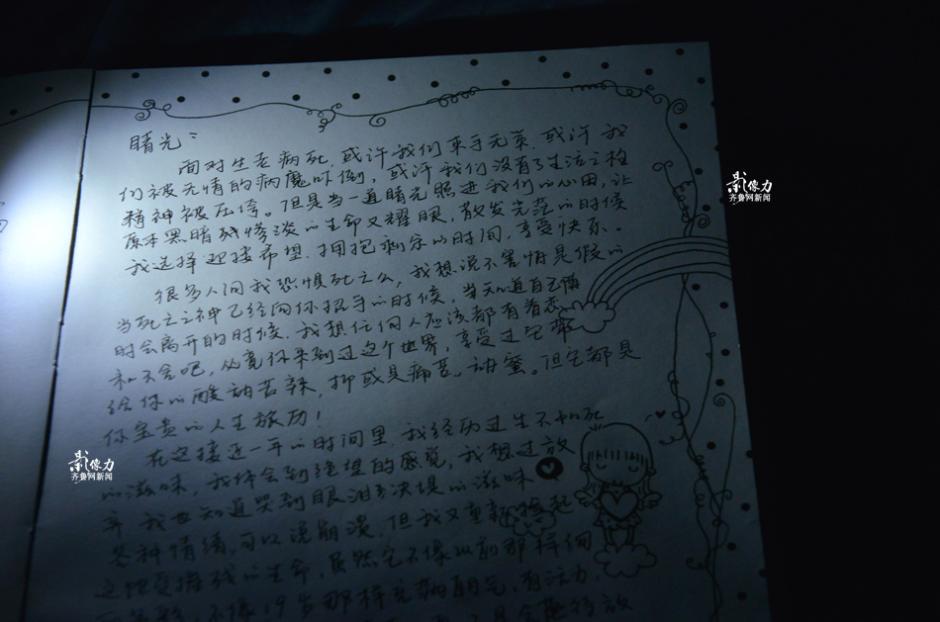 晴光：
面对生老病死，或许我们束手无策，或许我
们被无情的病魔吓倒，或许我们没有了生活之柱
精神被压垮。但是当一道晴光照进我们的心田，让
原本黑暗残惨淡的生命又耀眼，散发光茫的时候
我选择迎接希望，拥抱剩余的时间，享受快乐。
很多人问我恐惧死亡么，我想说不害怕是假的
当死亡之神已经向你招手的时候，当知道自己随
时会离开的时候，我想任何人应该都有着恋
和不舍吧，必竟你来到过这个世界，享受过它带
给你的酸甜苦辣，抑或是痛苦、甜蜜。但它都是
你宝贵的人生旅历！
在这接近一年的时间里，我经历过生不如死
的滋味，我体会到绝望的感觉，我想过放
弃 我也知道哭到眼泪 决堤的滋味
各种情绪，可以说崩溃，但我又重新捡起
这饱受摧残的生命，虽然它不像以前那样
不像19岁那样充满朝气，有活力，
影像力
齐鲁网新闻
影像力
齐鲁网新闻